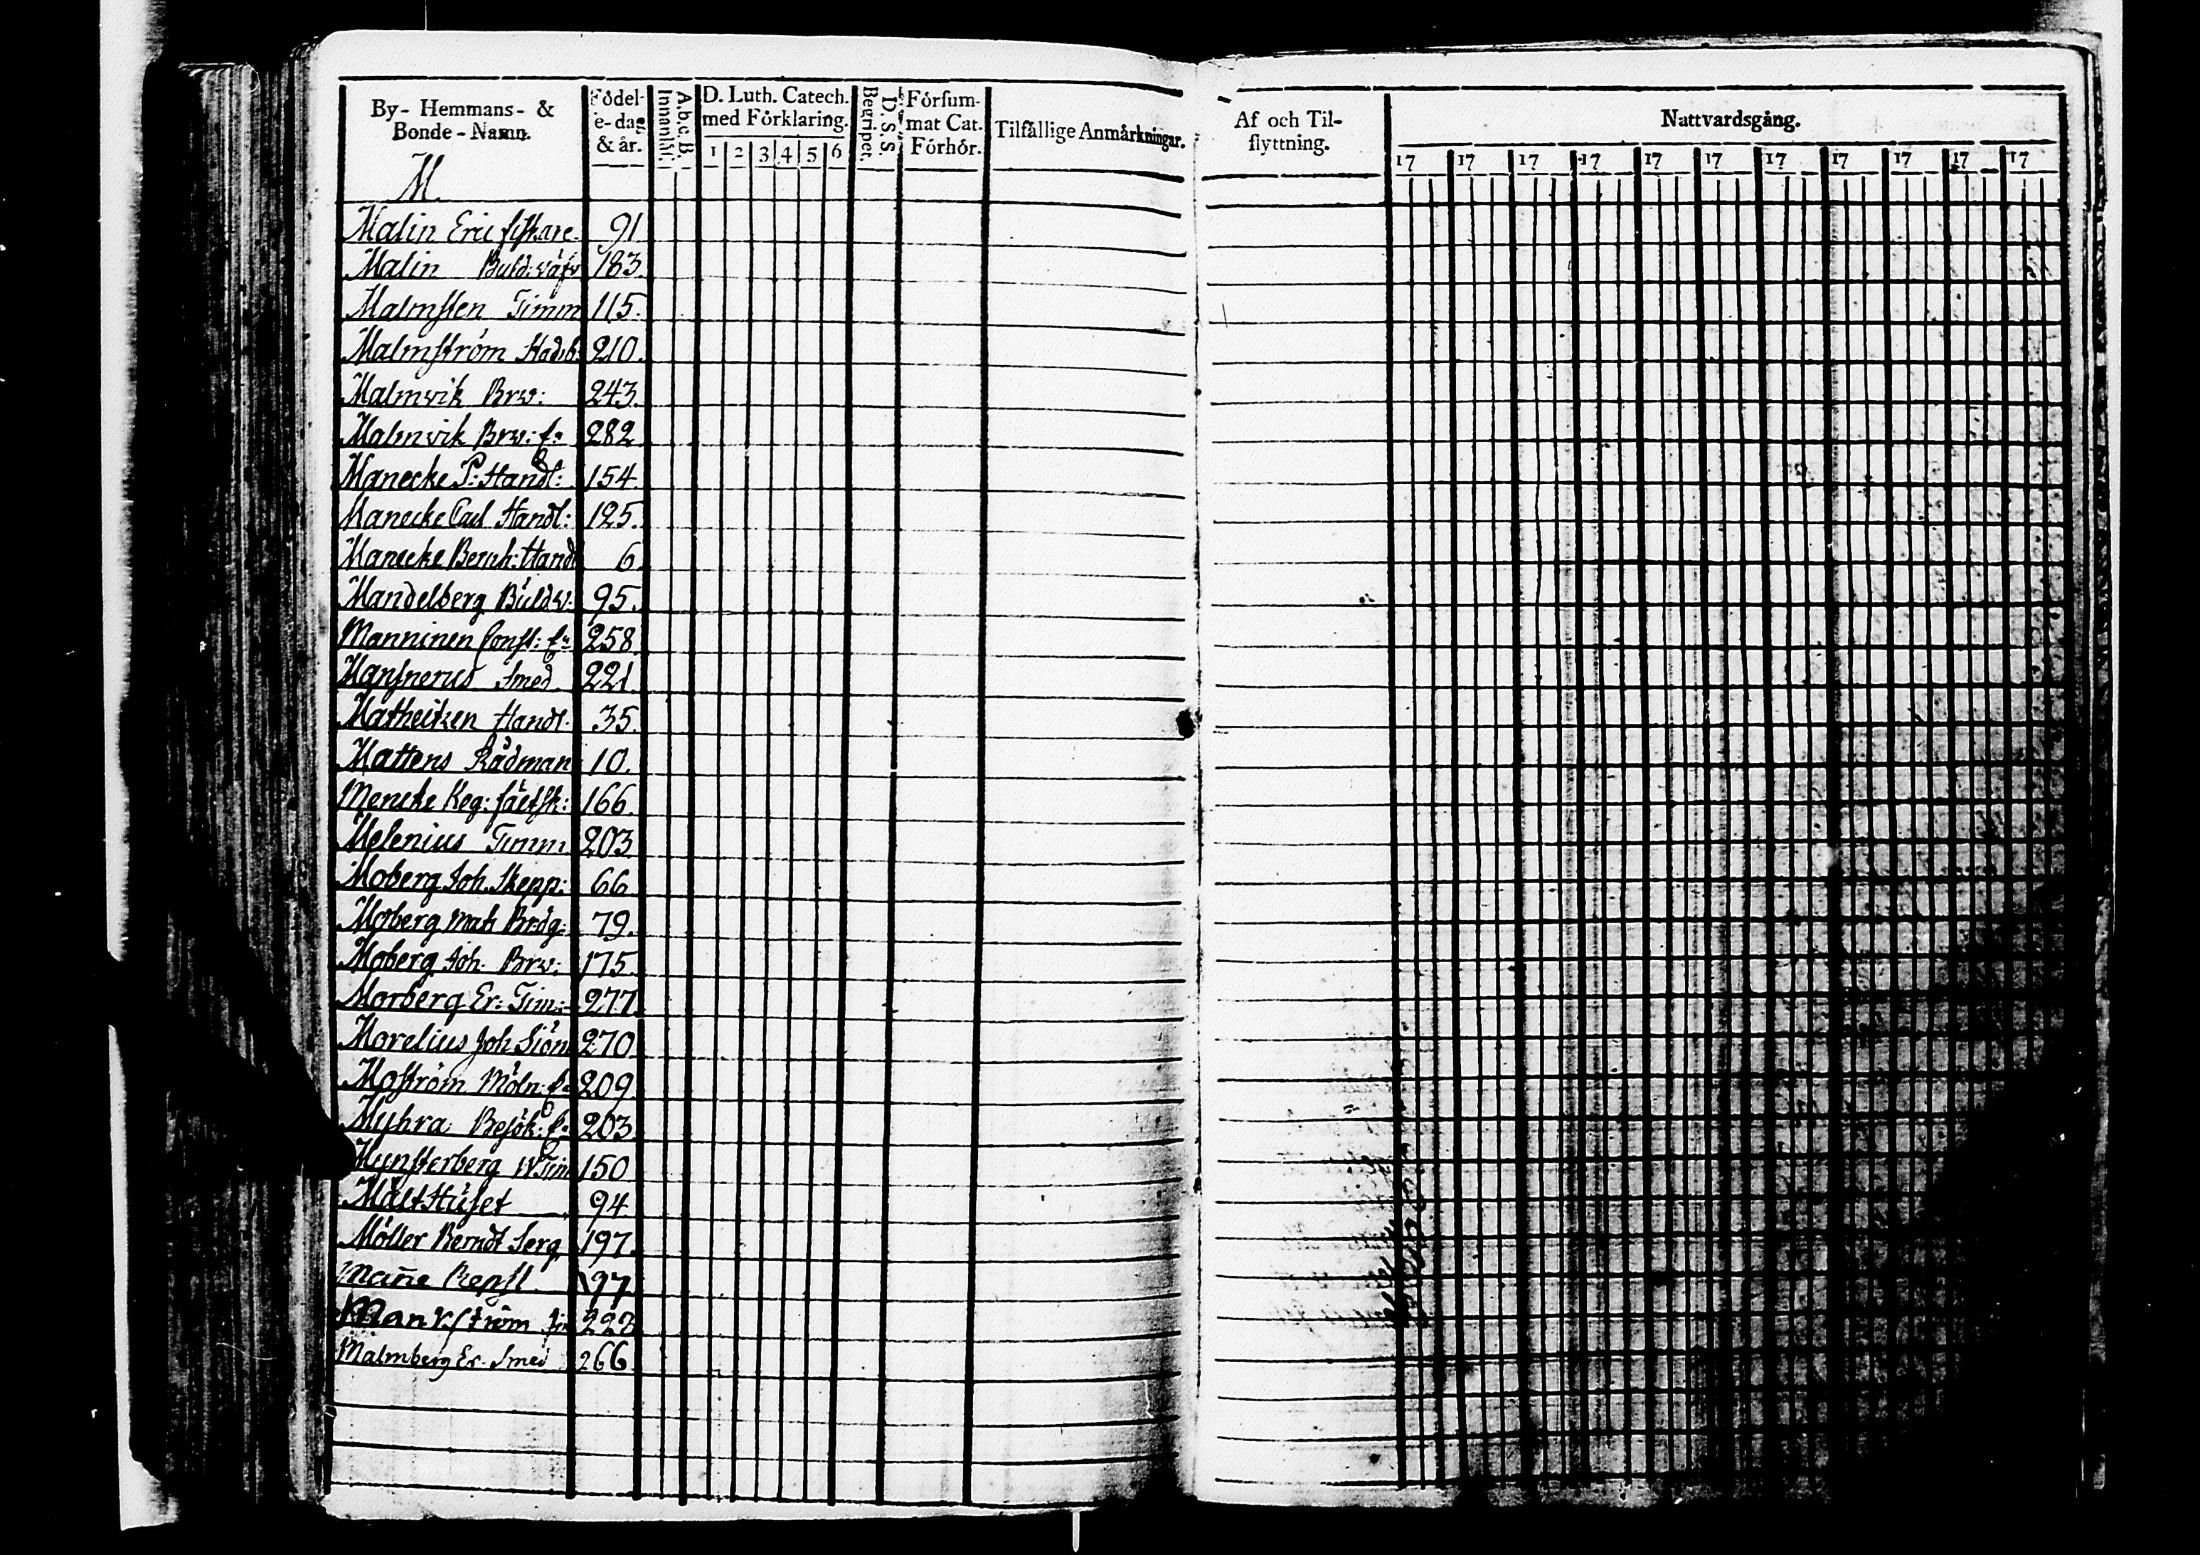 By- Hemmans- & Bonde-Namn.
Födel-e-dag & år.
A.b.c.B. Innanläs.
D. Luth. Catech. med Förklaring.
1 2 3 4 5 6
D. S. S. Begripet.
Försummat Cat. Förhör.
Tilfällige Anmärkningar.
Af och Tilflyttning.
Nattvardsgång.
17 17 17 17 17 17 17 17 17 17 17
M.
Malin Eric fiskare 91
Malin Buld: väfv 183.
Malmsten Timm 115.
Malmström Stadsb: 210.
Malmvik Brw: 243.
Malmvik Brw: E: 282
Manecke P: Handl: 154
Manecke Carl Handl: 125.
Manecke Bernh: Handl 6.
Mandelberg Buldv: 95.
Manninen Const: E: 258
Mansnerus Smed 221.
Matheitzen Handl. 35.
Mattens Rådman 10.
Mencke Reg: fältsk: 166.
Melenius Timm 203
Moberg Joh. Skepp: 66.
Moberg Mats Brdg: 79.
Moberg Joh. Brw: 175.
Morberg Er: Tim: 277.
Morelius Joh Siöm 270
Moström Möln: E: 209.
Myhra Besök: E: 203.
Mynsterberg W Tim 150
Mält Huset 94
Möller Berndt Serg 197.
Mañe 97
Mankström 227
Malmberg Er. Smed 266